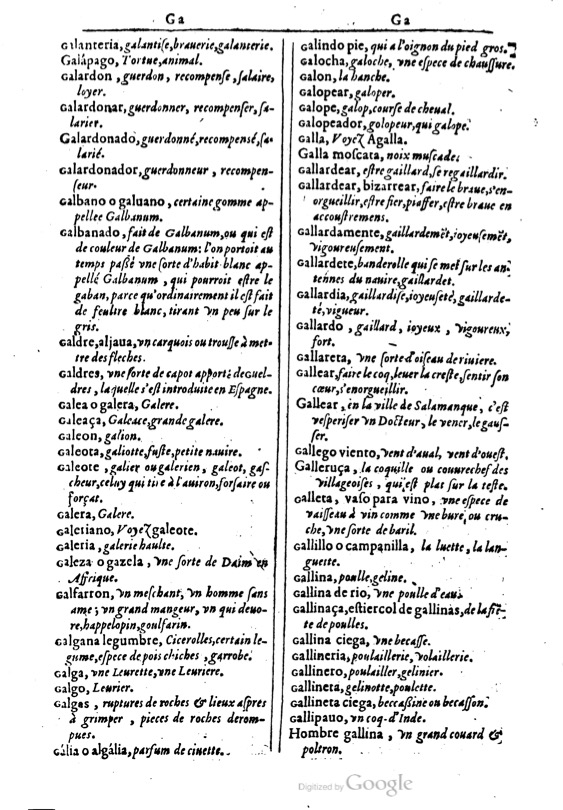 Ga
Galanteria, galantiſe, brauerie, galanterie.
Galápago, Tortue, animal.
Galardon, guerdon, recompenſe, ſalaire,
loyer.
Galardonar, guerdonner, recompenſer, ſa-
larier.
Galardonado, guerdonné, recompenſé, ſa-
larié.
Galardonador, guerdonneur, recompen-
ſeur.
Galbano o galuano, certaine gomme ap-
pellee Galbanum.
Galbanado, fait de Galbanum, ou qui est
de couleur de Galbanum: l'on portoit au
temps paſſé vne ſorte d'habit blanc ap-
pellé Galbanum, qui pourroit eſtre le
gaban, parce qu'ordinairement il eſt fait
de feultre blanc, tirant vn peu ſur le
gris.
Galdre, aljaua, vn carquois ou trouſſe à met-
tre des fleches.
Galdres, vne ſorte de capot apporté de Guel-
dres, laquelle s'eſt introduite en Eſpagne.
Galea o galera, Galere.
Galeaça, Galeace, grande galere.
Galeon, galion.
Galeota, galiotte, fuſte, petite nauire.
Galeote, galier ou galerien, galeot, gaſ-
cheur, celuy qui tire à l'auiron, forſaire ou
forçat.
Galera, Galere.
Galetiano, Voyez galeote.
Galeria, galerie haulte.
Galeza o gazela, vne ſorte de Daim en
Affrique.
Galfarron, vn meſchant, vn homme ſans
ame; vn grand mangeur, vn qui deuo-
re, happelopin, goulfarin.
Galgana legumbre, Cicerolles, certain le-
gume, eſpece de pois chiches, garrobe.
Galga, vne Leurette, vne Leuriere.
Galgo, Leurier.
Galgas, ruptures de roches & lieux aſpres
à grimper, pieces de roches derom-
pues.
Gália o algália, parfum de ciuette.
Ga
Galindo pie, qui a l'oignon du pied gros.
Galocha, galoche, vne eſpece de chauſſure.
Galon, la hanche.
Galopear, galoper.
Galope, galop, courſe de cheual.
Galopeador, golopeur, qui galope.
Galla, Voyez Agalla.
Galla moſcata, noix muſcade.
Gallardear, eſtre gaillard, ſe regaillardir.
Gallardear, bizarrear, faire le braue, s'en-
orgueillir, eſtre fier, piaffer, eſtre braue en
accouſtremens.
Gallardamente, gaillardemēt, ioyeuſemēt,
vigoureuſement.
Gallardete, banderolle qui ſe met ſur les an-
tennes du nauire, gaillardet.
Gallardia, gaillardiſe, ioyeuſeté, gaillarde-
té, vigueur.
Gallardo, gaillard, ioyeux, vigoureux,
fort.
Gallareta, vne ſorte d'oiſeau de riuiere.
Gallear, faire le coq, leuer la creſte, ſentir ſon
cœur, s'enorgueillir.
Gallear, en la ville de Salamanque, c'eſt
veſperiſer vn Docteur, le vener, le gauſ-
ſer.
Gallego viento, vent d'aual, vent d'oueſt.
Galleruça, la coquille ou couurechef des
villageoiſes, qui eſt plat ſur la teſte.
Galleta, vaſo para vino, vne eſpece de
vaiſſeau à vin comme vne bure, ou cru-
che, vne ſorte de baril.
Gallillo o campanilla, la luette, la lan-
guette.
Gallina, poulle, geline.
Gallina de rio, vne poulle d'eau.
Gallinaça, eſtiercol de gallinas, de la fiē-
te de poulles.
Gallina ciega, vne becaſſe.
Gallineria, poulaillerie, volaillerie.
Gallinero, poulailler, gelinier.
Gallineta, gelinotte, poulette.
Gallineta ciega, becaſſine ou becaſſon.
Gallipauo, vn coq-d'Inde.
Hombre gallina, vn grand couard &
poltron.
Digitized by Google